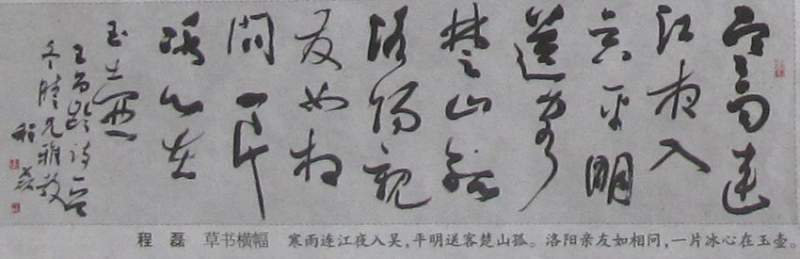 寒雨連
江夜入
吳平明
送客
楚山孤
洛陽親
友如相
問一片
冰心在
玉壺
王昌齡詩
兄雅教
程磊
程 磊 草书横幅 寒雨连江夜入吴,平明送客楚山孤。洛阳亲友如相问,一片冰心在玉壶。